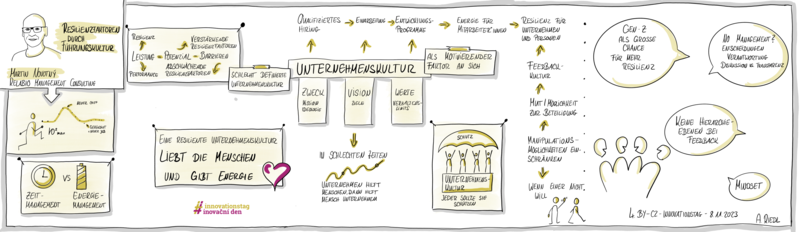 RESILIENZFAKTOREN
DURCH
FÜHRUNGSKULTUR
MARTIN NOVOTNÝ
MANAGEMENT CONSULTING
ZEIT-
MANAGEMENT
VS
ENERGIE-
MANAGEMENT
RESILIENZ
VERSTÄRKENDE
RESILIENZFAKTOREN
LEISTUNG = POTENTIAL - BARRIEREN
PERFORMANCE
ABSCHWÄCHENDE
RESILIENZFAKTOREN
SCHLECHT DEFINIERTE
UNTERNEHMENSKULTUR
EINE RESILIENTE UNTERNEHMENSKULTUR
LIEBT DIE MENSCHEN
UND GIBT ENERGIE
innovationstag
inovační den
QUALIFIZIERTES
HIRING
EINARBEITUNG
ENTWICKLUNGS-
PROGRAMME
ENERGIE FÜR
MITARBEITER*INNEN
RESILIENZ FÜR
UNTERNEHMEN
UND PERSONEN
UNTERNEHMENSKULTUR
ALS MOTIVIERENDER
FAKTOR AN SICH
ZWECK
MISSION
VISION
WERTE
IN SCHLECHTEN ZEITEN
UNTERNEHMEN HILFT
MENSCHEN, DANN HILFT
MENSCH UNTERNEHMEN
SCHUTZ
UNTERNEHMENS-
KULTUR
JEDER SOLLTE SIE
SCHÜTZEN
FEEDBACK-
KULTUR
MUT/MÖGLICHKEIT
ZUR BETEILIGUNG
MANIPULATIONS-
MÖGLICHKEITEN EIN-
SCHRÄNKEN
WENN EINER NICHT
WILL
GEN-Z
ALS GROSSE
CHANCE
FÜR MEHR
RESILIENZ
NO MANAGEMENT?
ENTSCHEIDUNGEN
VERANTWORTUNG
KEINE HIERARCHIE-
EBENEN BEI
FEEDBACK
MINDSET
4. BY-CZ-INNOVATIONSTAG - 8.11.2023
A. RIEDL